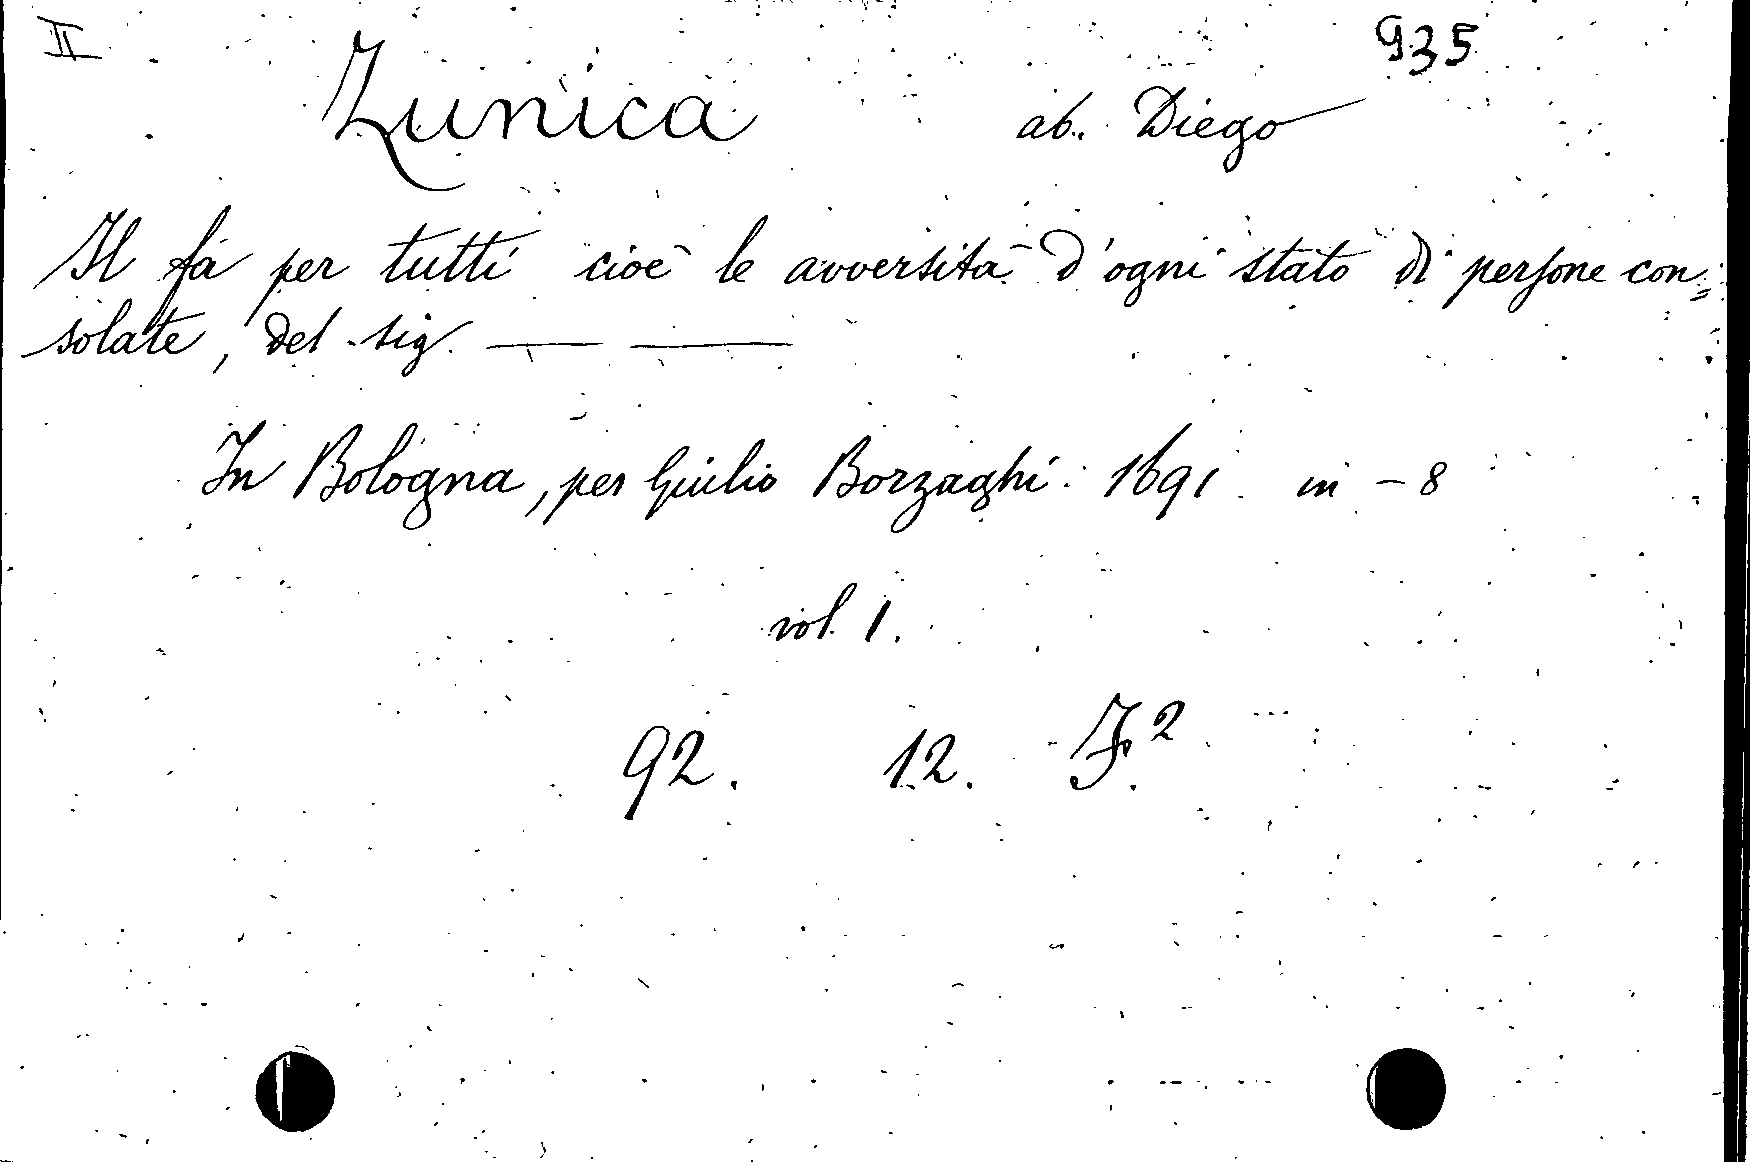 II 935
Zunica ab. Diego
Il fà per tutti cioè le avversità d'ogni stato di persone con=
solate, del sig. —— ——
In Bologna, per Giulio Borzaghi. 1691. in - 8
vol. 1.
92. 12. F.²